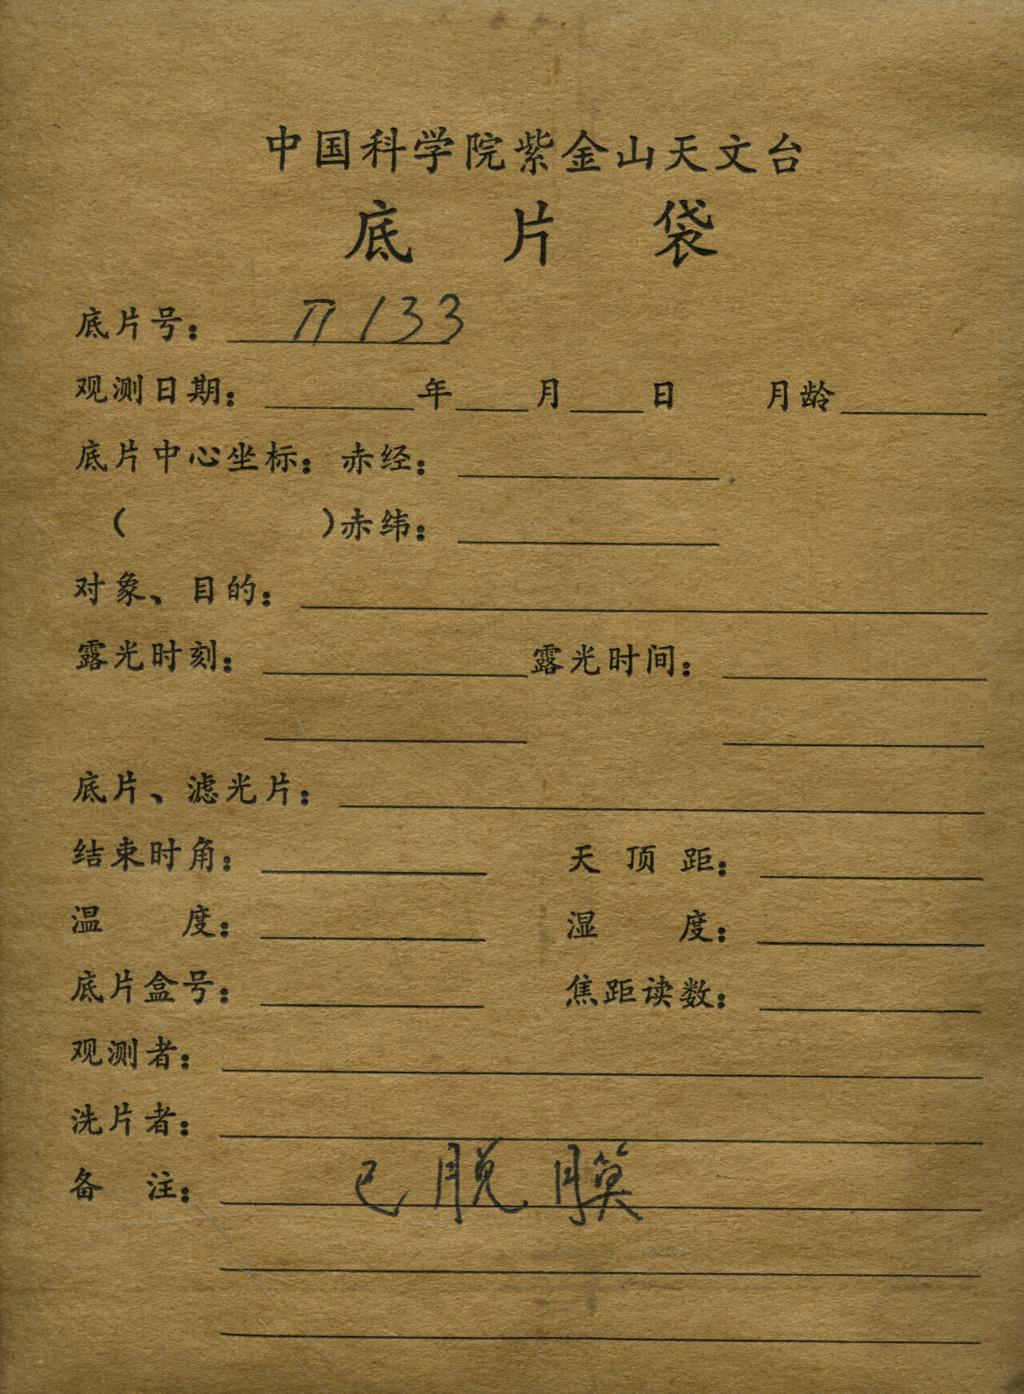 中国科学院紫金山天文台
底片袋
底片号: 133
观测日期: 年 月 日 月龄
底片中心坐标: 赤经:
( )赤纬:
对象、目的:
露光时刻: 露光时间:
底片、滤光片:
结束时角: 天顶距:
温度: 湿度:
底片盒号: 焦距读数:
观测者:
洗片者:
备注: 已脱膜